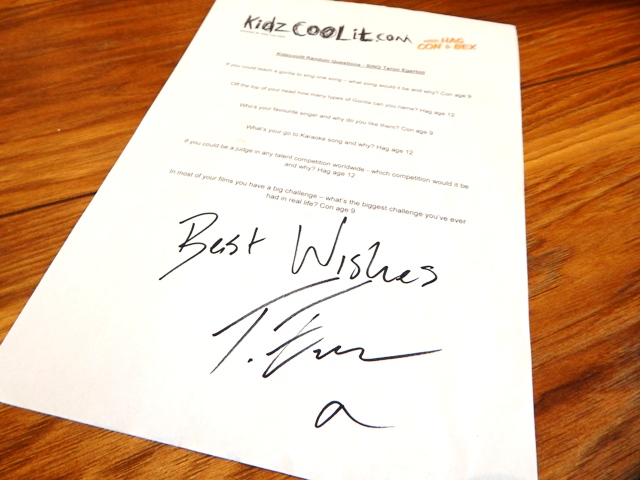 KidzCOOLit.com with HAG
CON & BEX
Kidzcoolit Random Questions - SING Taron Egerton
If you could teach a gorilla to sing one song – what song would it be and why? Con age 9
Off the top of your head how many types of Gorilla can you name? Hag age 12
Who's your favourite singer and why do you like them? Con age 9
What's your go to Karaoke song and why? Hag age 12
If you could be a judge in any talent competition worldwide – which competition would it be
and why? Hag age 12
In most of your films you have a big challenge – what's the biggest challenge you've ever
had in real life? Con age 9
Best Wishes